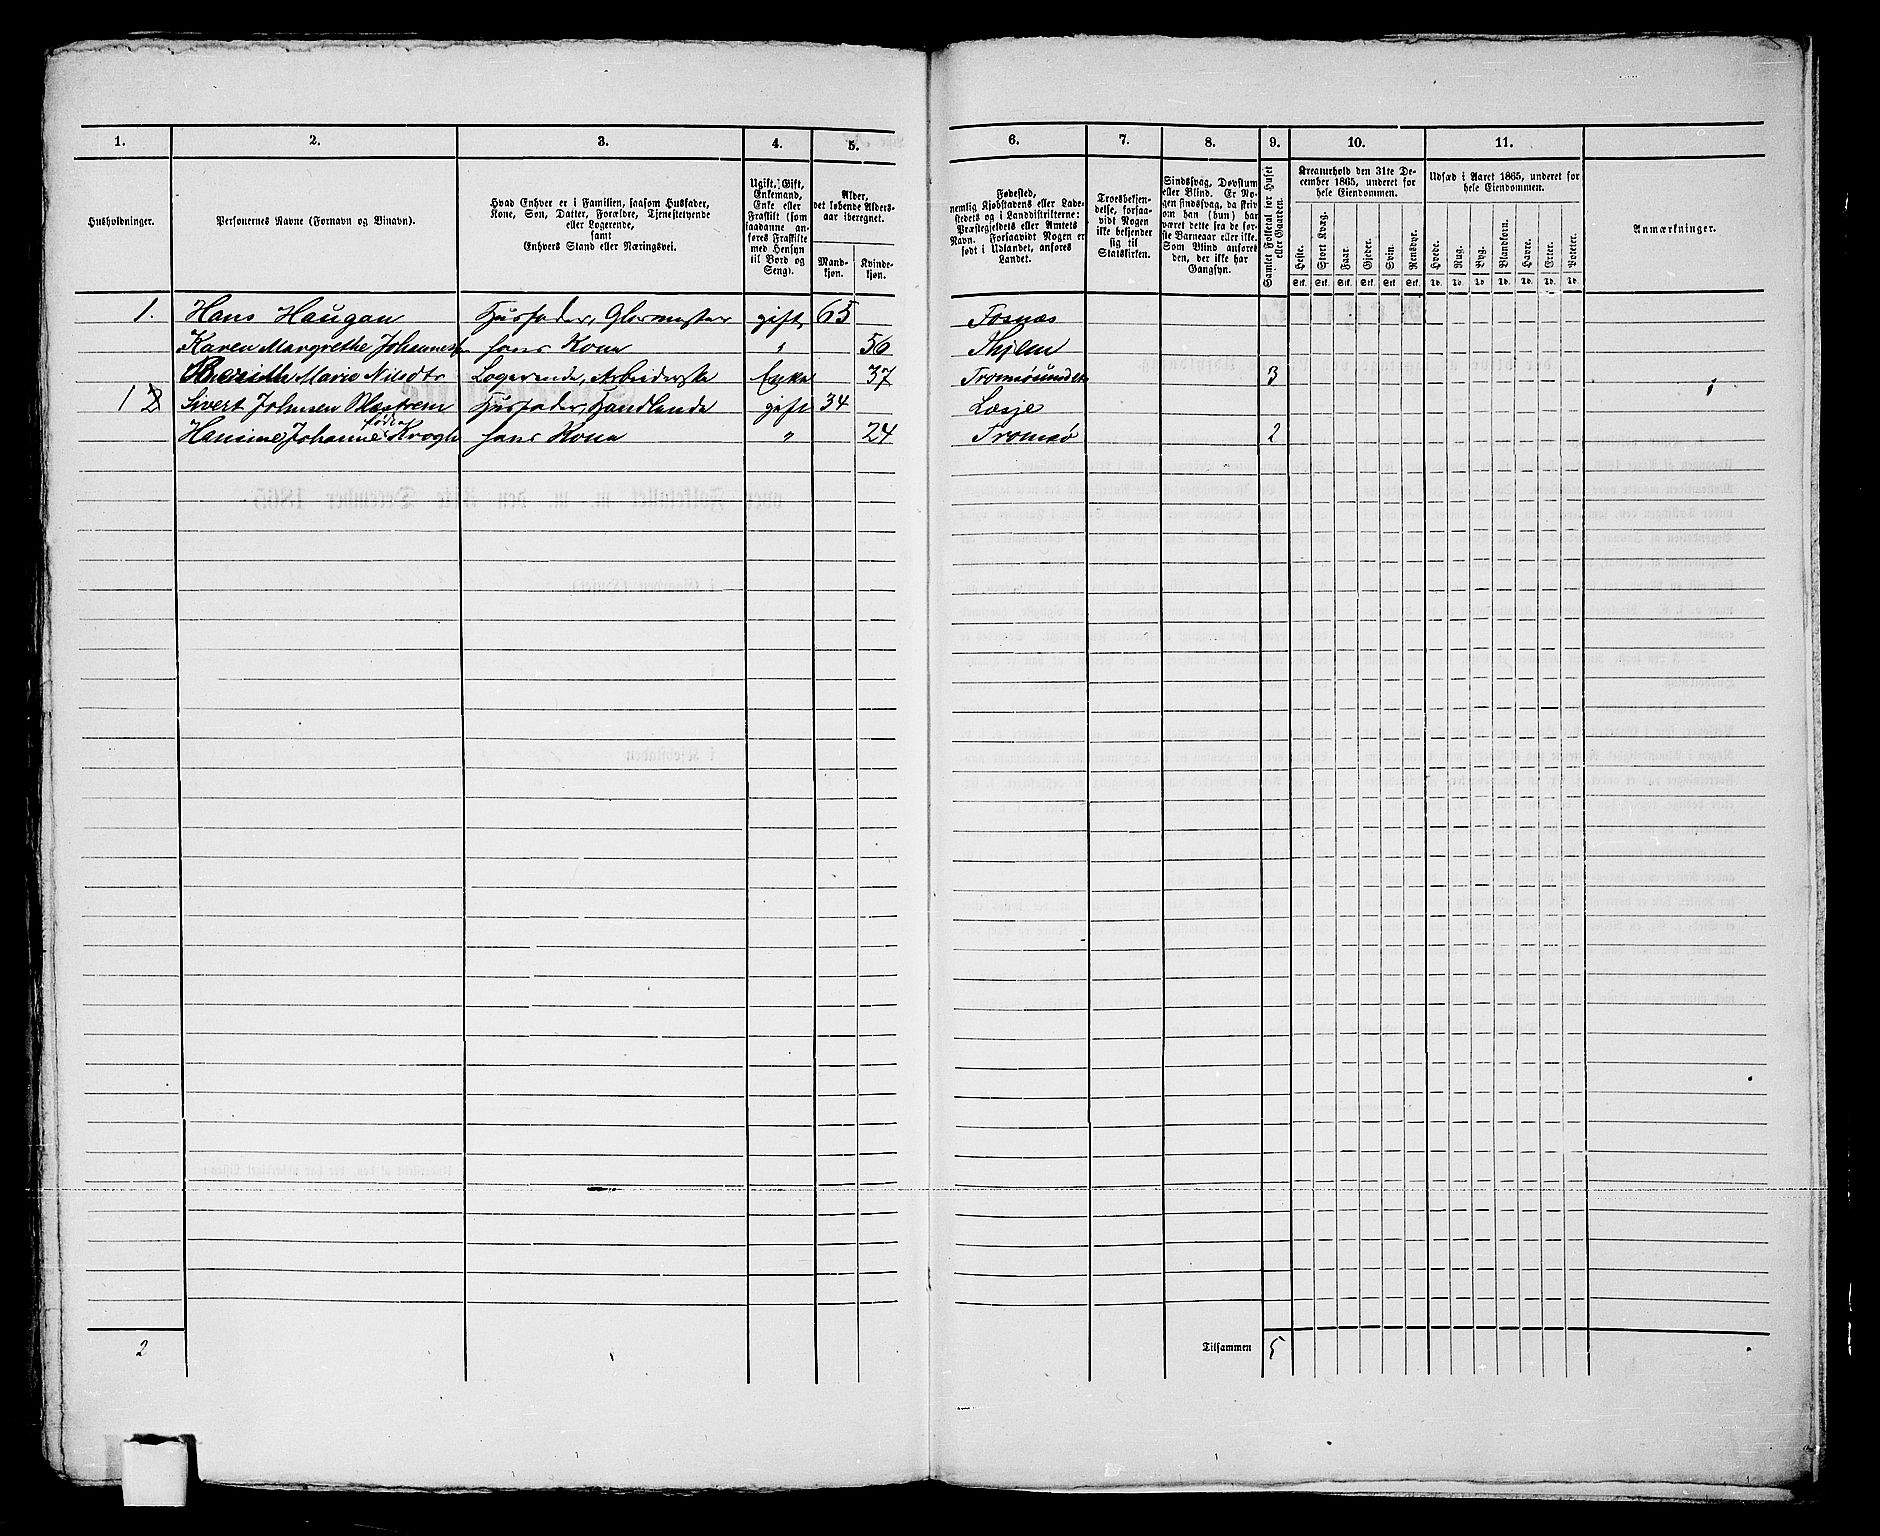 1. 2. 3. 4. 5. 6. 7. 8. 9. 10. 11.
Husholdninger.
Personernes Navne (Fornavn og Binavn).
Hvad Enhver er i Familien, saasom Husfader,
Kone, Søn, Datter, Forældre, Tjenestetyende
eller Logerende,
samt
Enhvers Stand eller Næringsvei.
Ugift, Gift,
Enkemand,
Enke eller
Fraskilt (som
saadanne an-
føres Fraskilte
med Hensyn
til Bord og
Seng).
Alder,
det løbende Alders-
aar iberegnet.
Mand-
kjøn.
Kvinde-
kjøn.
Fødested,
nemlig Kjøbstadens eller Lade-
stedets og i Landdistrikterne:
Præstegjeldets eller Amtets
Navn. Forsaavidt Nogen er
født i Udlandet, anføres
Landet.
Troesbekjen-
delse, forsaa-
vidt Nogen
ikke bekjender
sig til
Statskirken.
Sindssvag, Døvstum
eller Blind. Er No-
gen sindssvag, da skriv
om han (hun) har
været dette fra de før-
ste Barneaar eller ikke.
Som Blind anføres
den, der ikke har
Gangsyn.
Samlet Folketal for Huset
eller Gaarden.
Kreaturhold den 31te De-
cember 1865, underet for
hele Eiendommen.
Heste. Stort Kvæg. Faar. Gjeder. Svin. Rensdyr.
Stk. Stk. Stk. Stk. Stk. Stk.
Udsæd i Aaret 1865, underet for
hele Eiendommen.
Hvede. Rug. Byg. Blandkorn. Havre. Erter. Poteter.
Td. Td. Td. Td. Td. Td. Td.
Anmærkninger.
1. Hans Haugan Husfader, Glarmester gift 65 Fosnæs
Karen Margrethe hans Kone " 56
Marie Nilsdtr Logerende, Arbeiderske Enke 37 Tromsøsundet 3
1 2 Sivert Johnsen Husfader, Handlende gift 34 Lesje
Hansine Johanne født Krogh hans Kone " 24 Tromsø 2
2 Tilsammen 5